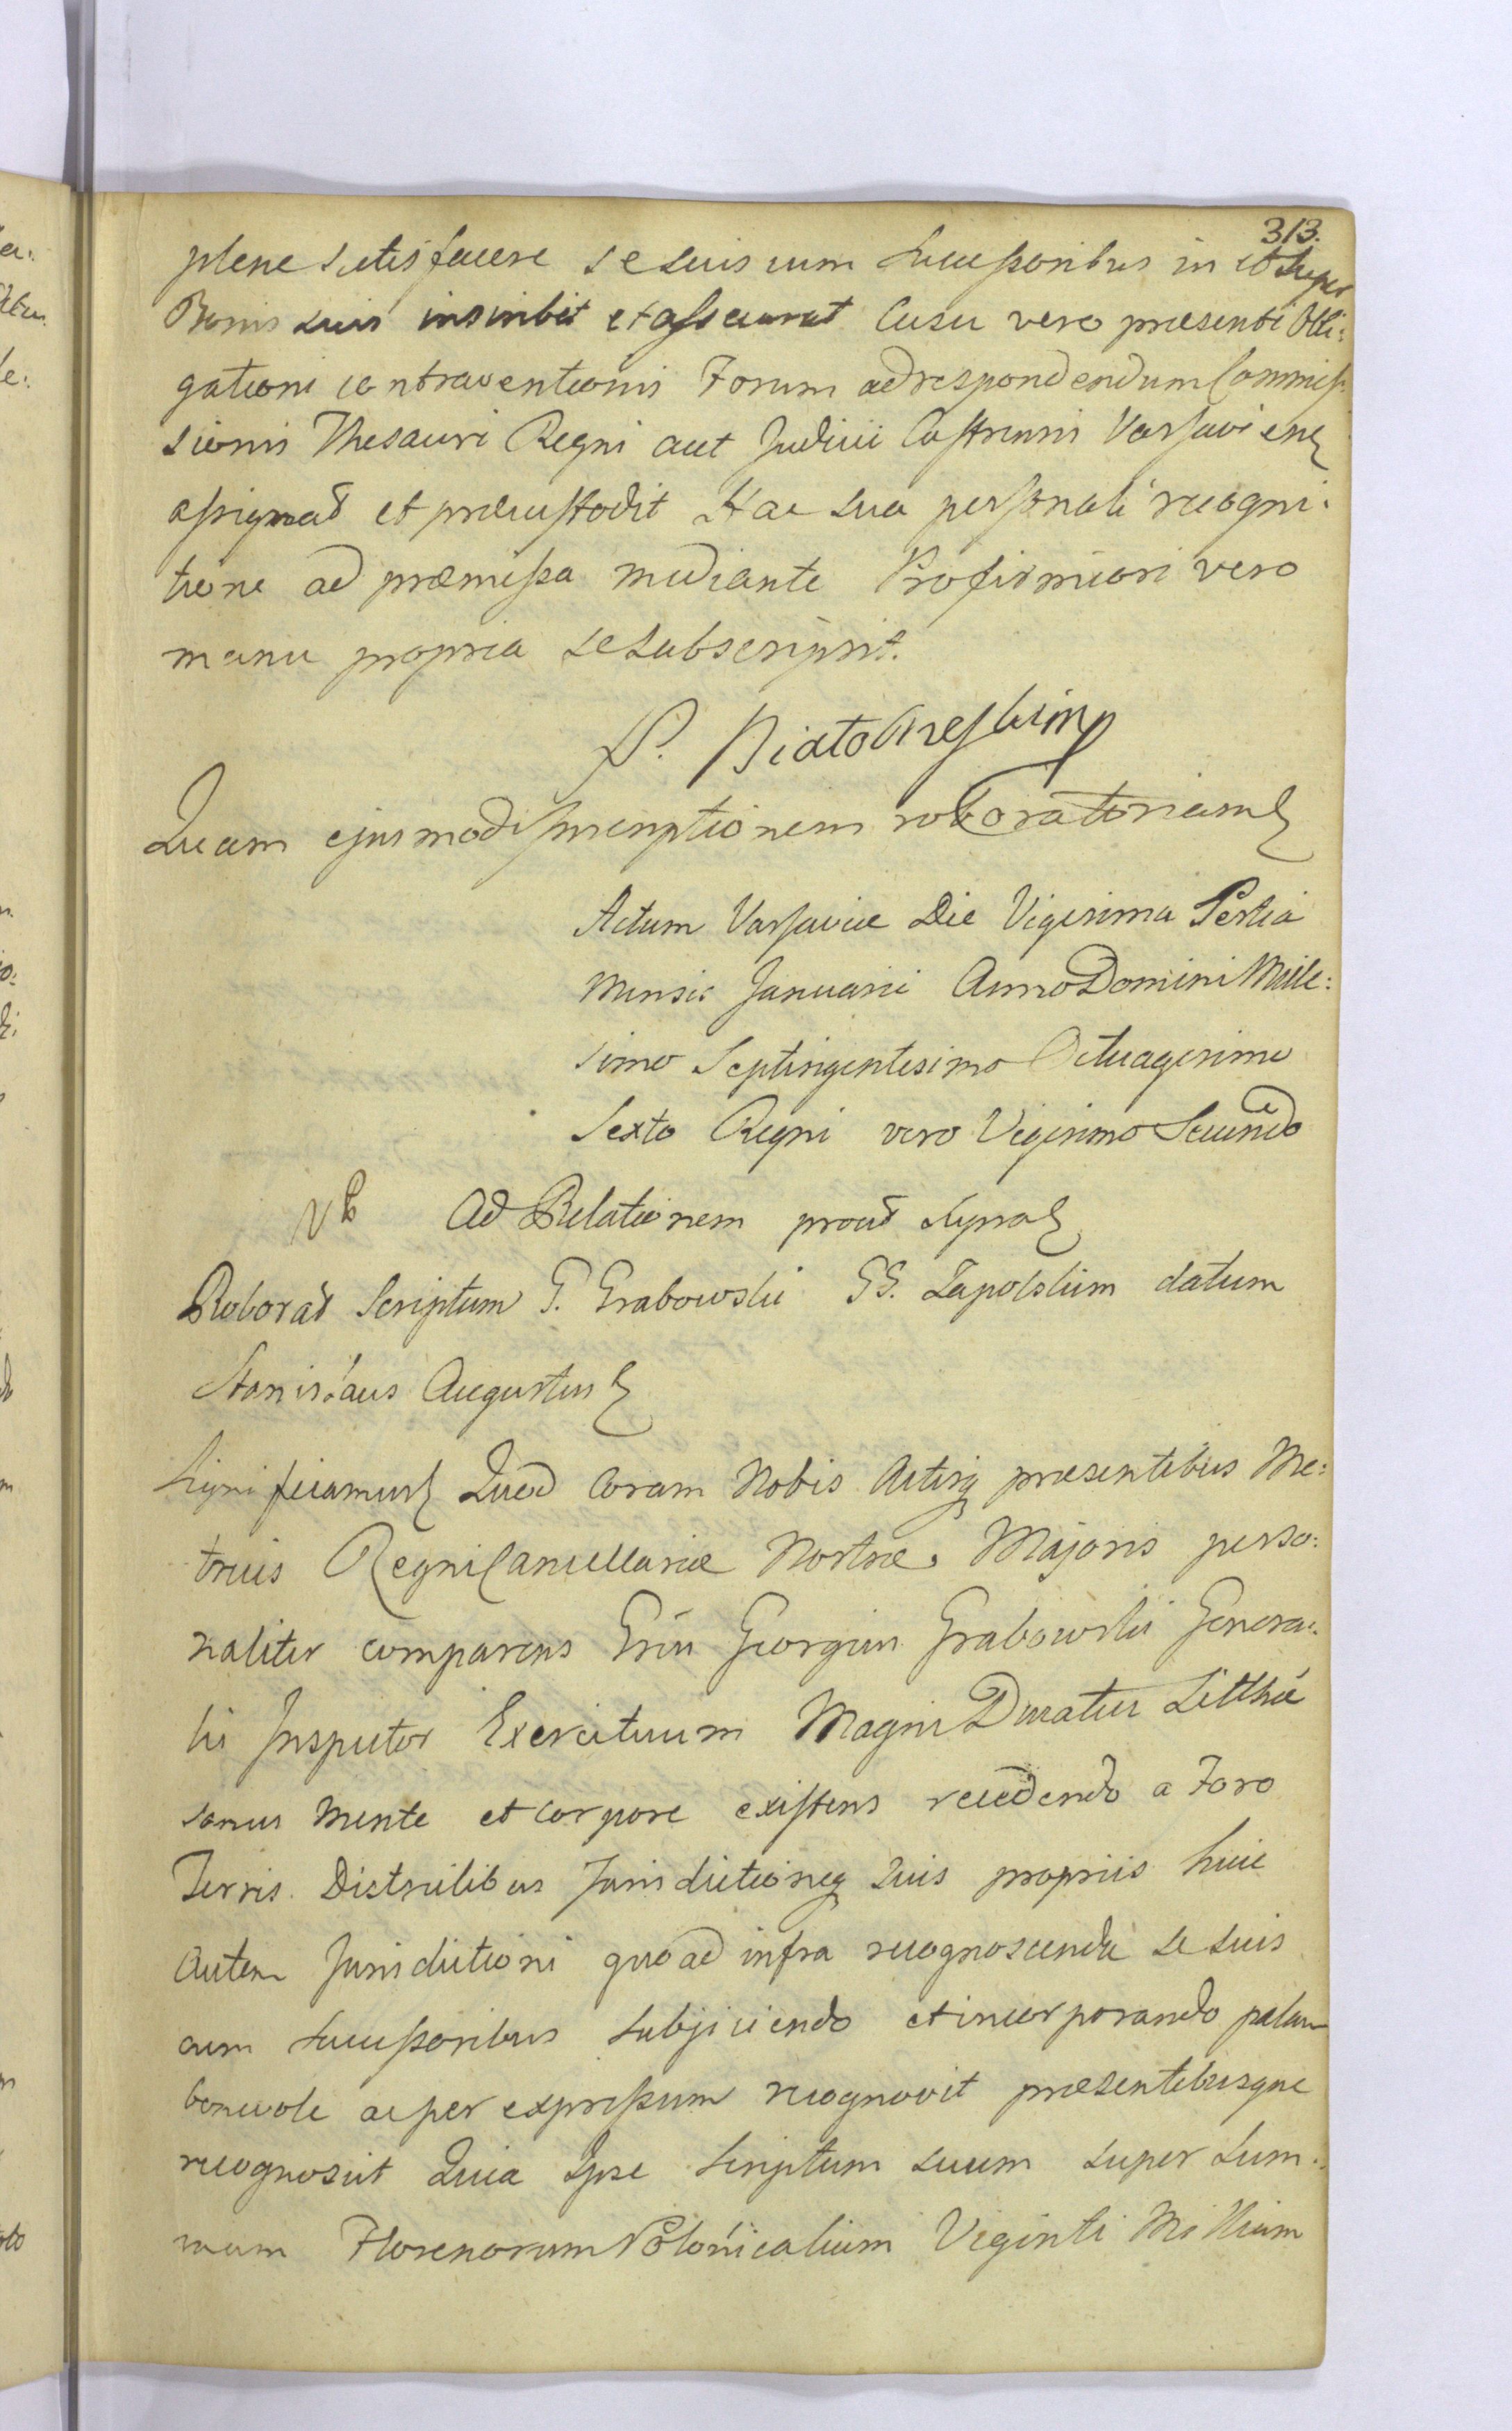 313.
plene satisfacere se suis cum successoribus in et super
Bonis suis inscribit et assecurat Casu vero præsenti Obli:
gationi contraventionis Forum ad respondendum Commis:
sionis Thesauri Regni aut Judicii Castrensis Varsavien
assignat et præcustodit Hac sua personali recogni:
tione ad præmissa mediante Pro firmiori vero
manu propria se subscripsit.
P.
Quam ejusmodi inscriptionem roboratoriam
Actum Varsaviæ Die Vigesima Tertia
Mensis Januarii Anno Domini Mille:
simo Septingentesimo Octuagesimo
Sexto Regni vero Vigesimo Secundo
Ad Relationem prout supra
Roborat Scriptum G. Grabowski GG. Zapolskim datum
Stanislaus Augustus
Significamus Quod Coram Nobis Actisq præsentibus Me:
tricis Regni Cancellariæ Nostræ Majoris perso:
naliter comparens Grsus Georgius Grabowski Genera:
lis Inspector Exercituum Magni Ducatus Litthuæ
sanus Mente et Corpore existens recedendo a Foro
Terris Districtibus Jurisdictioneq suis propriis huic
autem Jurisdictioni quo ad infra recognoscenda se suis
cum successoribus subjiciendo et incorporando palam
benevole ac per expressum recognovit præsentibusque
recognoscit Quia Ipse Scriptum suum super Sum:
mam Florenorum Polonicalium Viginti Millium